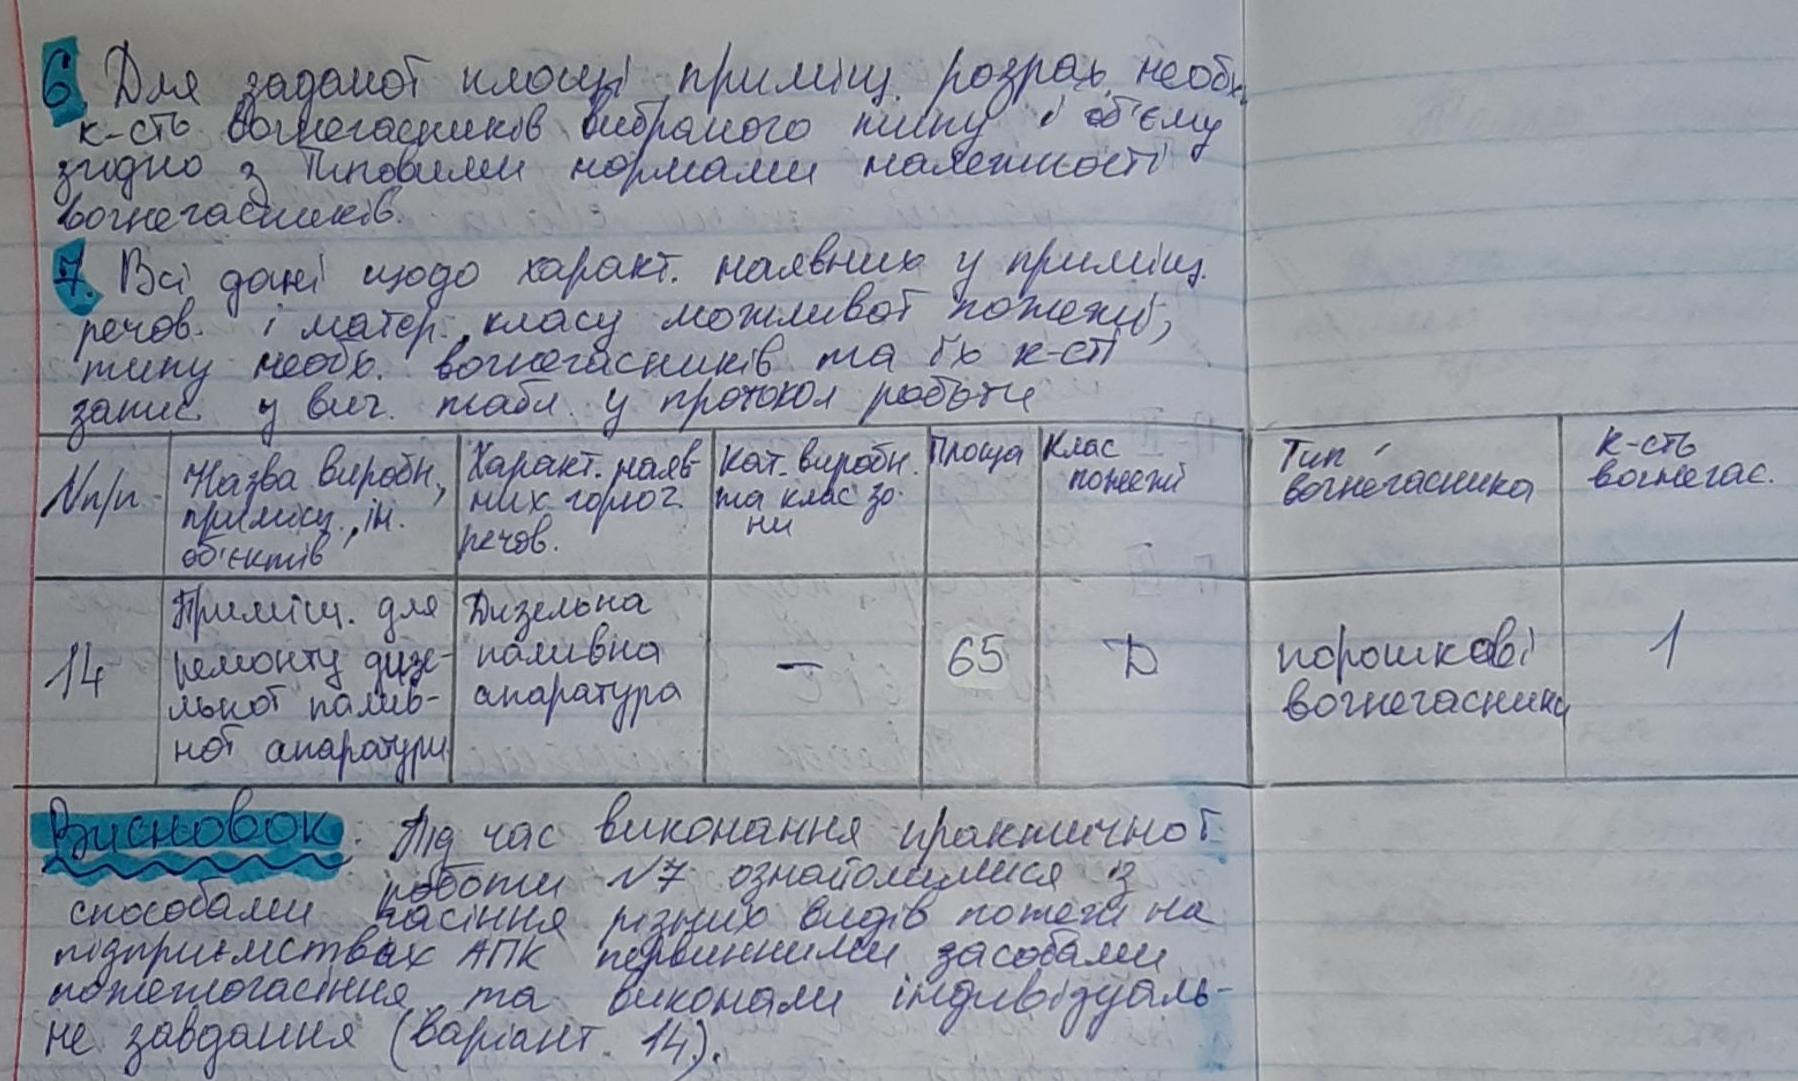 6. Для заданої площі приміщ. розрах. необх.
к-сть вогнегасників вибраного типу і об'єму
згідно з Типовими нормами належності
вогнегасників.
7. Всі дані щодо характ. наявних у приміщ.
речов. і матер., класу можливої пожежі,
типу необх. вогнегасників та їх к-сті
запис. у виг. табл. у протокол роботи
№п/п
Назва виробн.,
приміщ., ін.
об'єктів
Характ. наяв-
них горюч.
речов.
Кат. виробн.
та клас зо-
ни
Площа
Клас
пожежі
Тип
вогнегасника
К-сть
вогнегас.
14
Приміщ. для
ремонту дизе-
льної палив-
ної апаратури
Дизельна
паливна
апаратура
—
65
D
порошкові
вогнегасники
1
Висновок. Під час виконання практичної
роботи №7 ознайомилися із
способами гасіння різних видів пожежі на
підприємствах АПК первинними засобами
пожежогасіння та виконали індивідуаль-
не завдання (варіант 14).